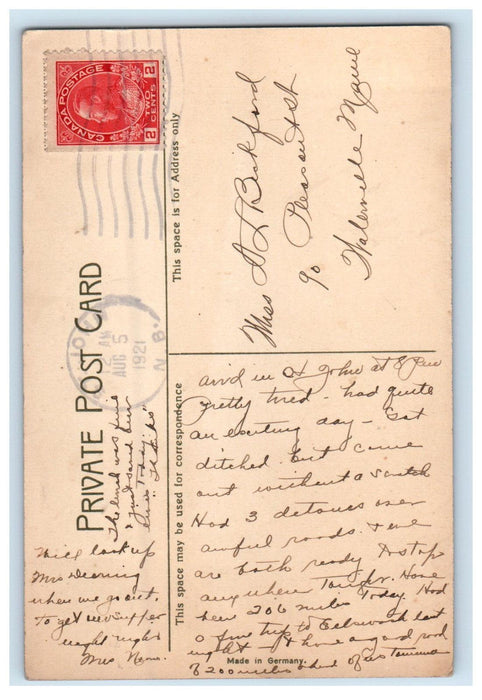 CANADA POSTAGE
2 TWO CENTS 2
2 AM
AUG 5
1921
N.B.
PRIVATE POST CARD
This space is for Address only
This space may be used for correspondence
Miss A L Bickford
90 Pleasant St
Waterville Maine
arrvd in St John at 8 P.M
pretty tired - had quite
an exciting day - Got
ditched but came
out without a scratch
Had 3 detours over
awful roads. & we
are both ready to stop
anywhere Tonight. Have
been 206 miles Today Had
a fine trip to Ellsworth last
night - & have a good road
of 200 miles ahead of us Tomorrow
Will look up
Mrs Deering
when we go out.
To get our supper
night night
Mrs
The lunch was fine
Today.
Made in Germany.